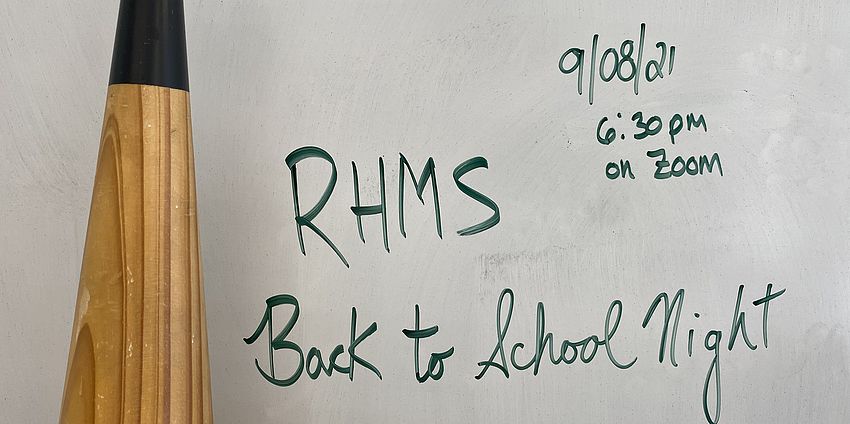 9/08/21
6:30pm
on Zoom
RHMS
Back to School Night